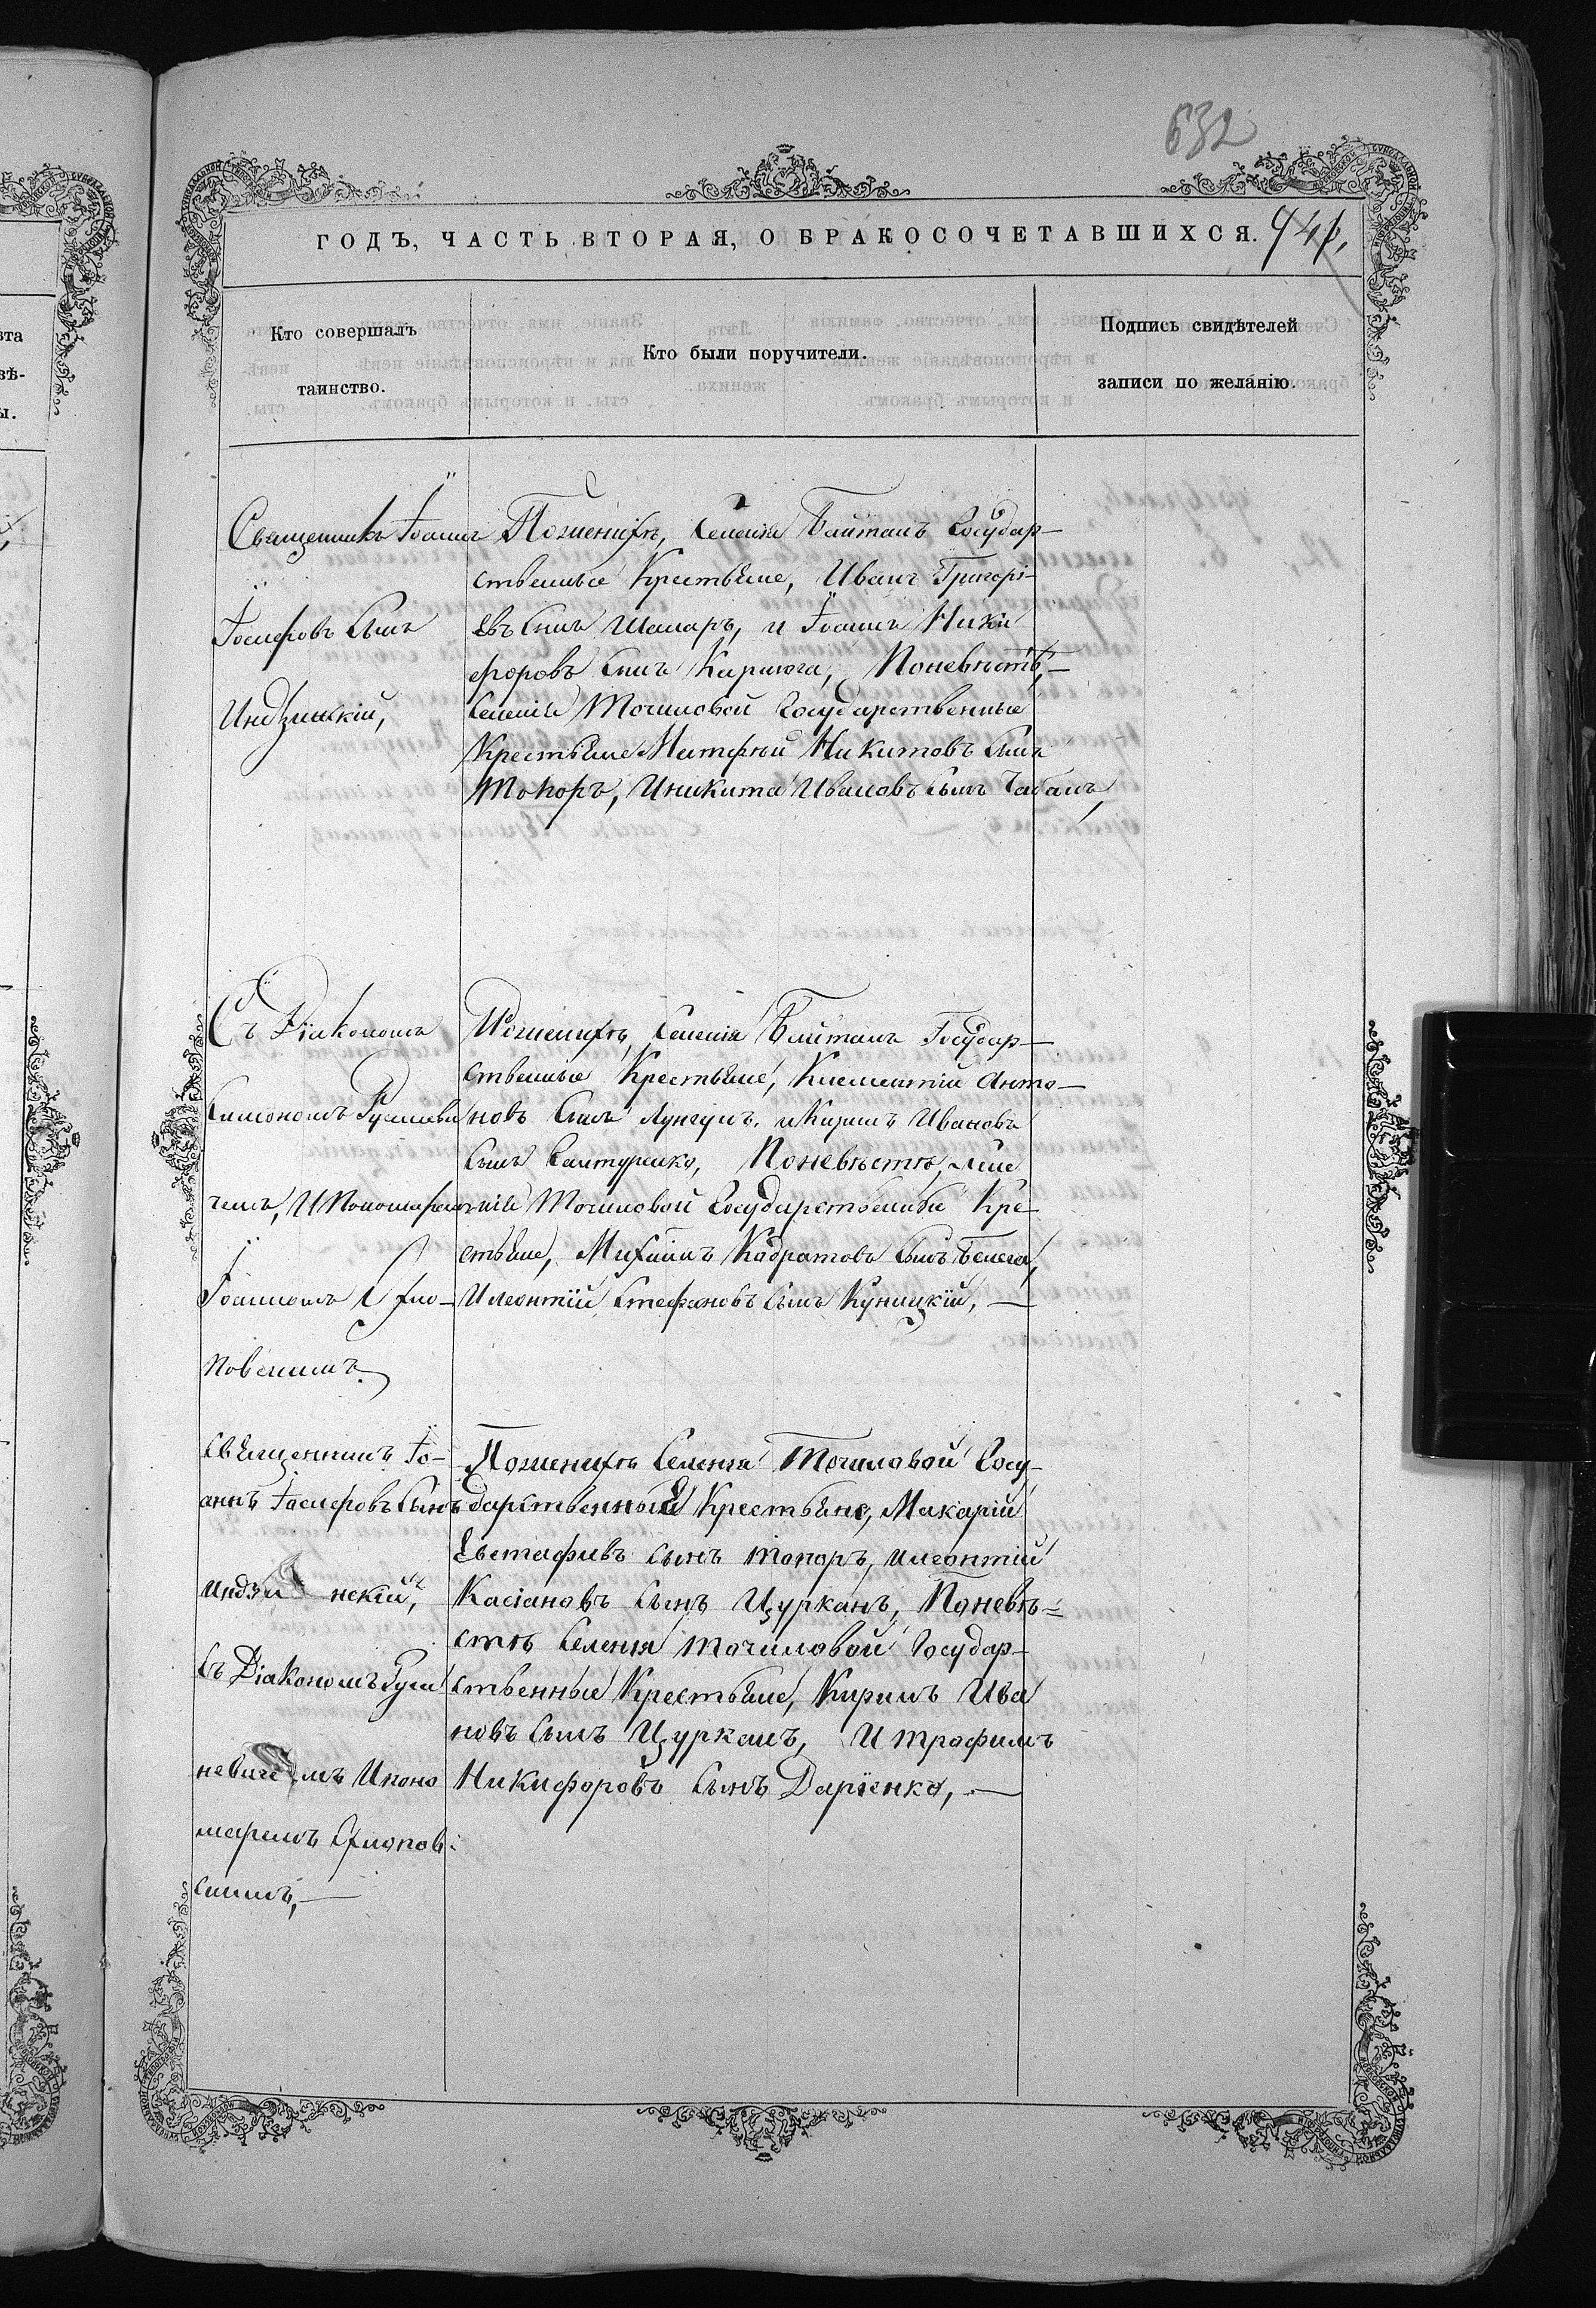 632
ГОДЪ, ЧАСТЬ ВТОРАЯ, О БРАКОСОЧЕТАВШИХСЯ.
941,
Кто совершалъ
таинство.
Кто были поручители.
Подпись свидѣтелей
записи по желанію.
Священникъ Іоаннъ
Іосифовъ Сынъ
Индзинскій,
Поженихѣ, Селенія Байтанъ Государ-
ственные Крестьяне, Иванъ Григорі-
евъ Сынъ Шапаръ, и Іоаннъ Ники
форовъ Сынъ Кирнога, Поневѣстѣ,-
Селенія Точиловой Государственные
Крестьяне Матфей Никитовъ Сынъ
Топоръ, Иникита Ивановъ Сынъ Чабанъ,
Съ Діакономъ
Симеономъ
чемъ, И Пономаремъ
Іоанномъ Афто-
повскимъ
Поженихѣ, Селенія Байтанъ Государ-
ственные Крестьяне, Климентій Анто-
новъ Сынъ Лунгулъ, иКирилъ Ивановъ
Сынъ Поневѣстѣ, Селе
нія Точиловой Государственные Кре-
стьяне, Михаилъ Кодратовъ Сынъ Белега,
Илеонтій Стефановъ Сынъ Куницкій,-
Священникъ Іо-
аннъ Іосифовъ Сынъ
Индзи нскій,
Съ Діакономъ Гуми
невиче мъ Ипоно
маремъ
Поженихѣ Селенія Точиловой Госу-
дарственные Крестьяне, Макарій
Евстафивъ Сынъ Топоръ, илеонтій
Касіановъ Сынъ Цурканъ, Поневѣ=
стѣ Селенія Точиловой Государ-
ственные Крестьяне, Кирилъ Ива
новъ Сынъ Цурканъ, И Трофимъ
Никифоровъ Сынъ Даріенко,-